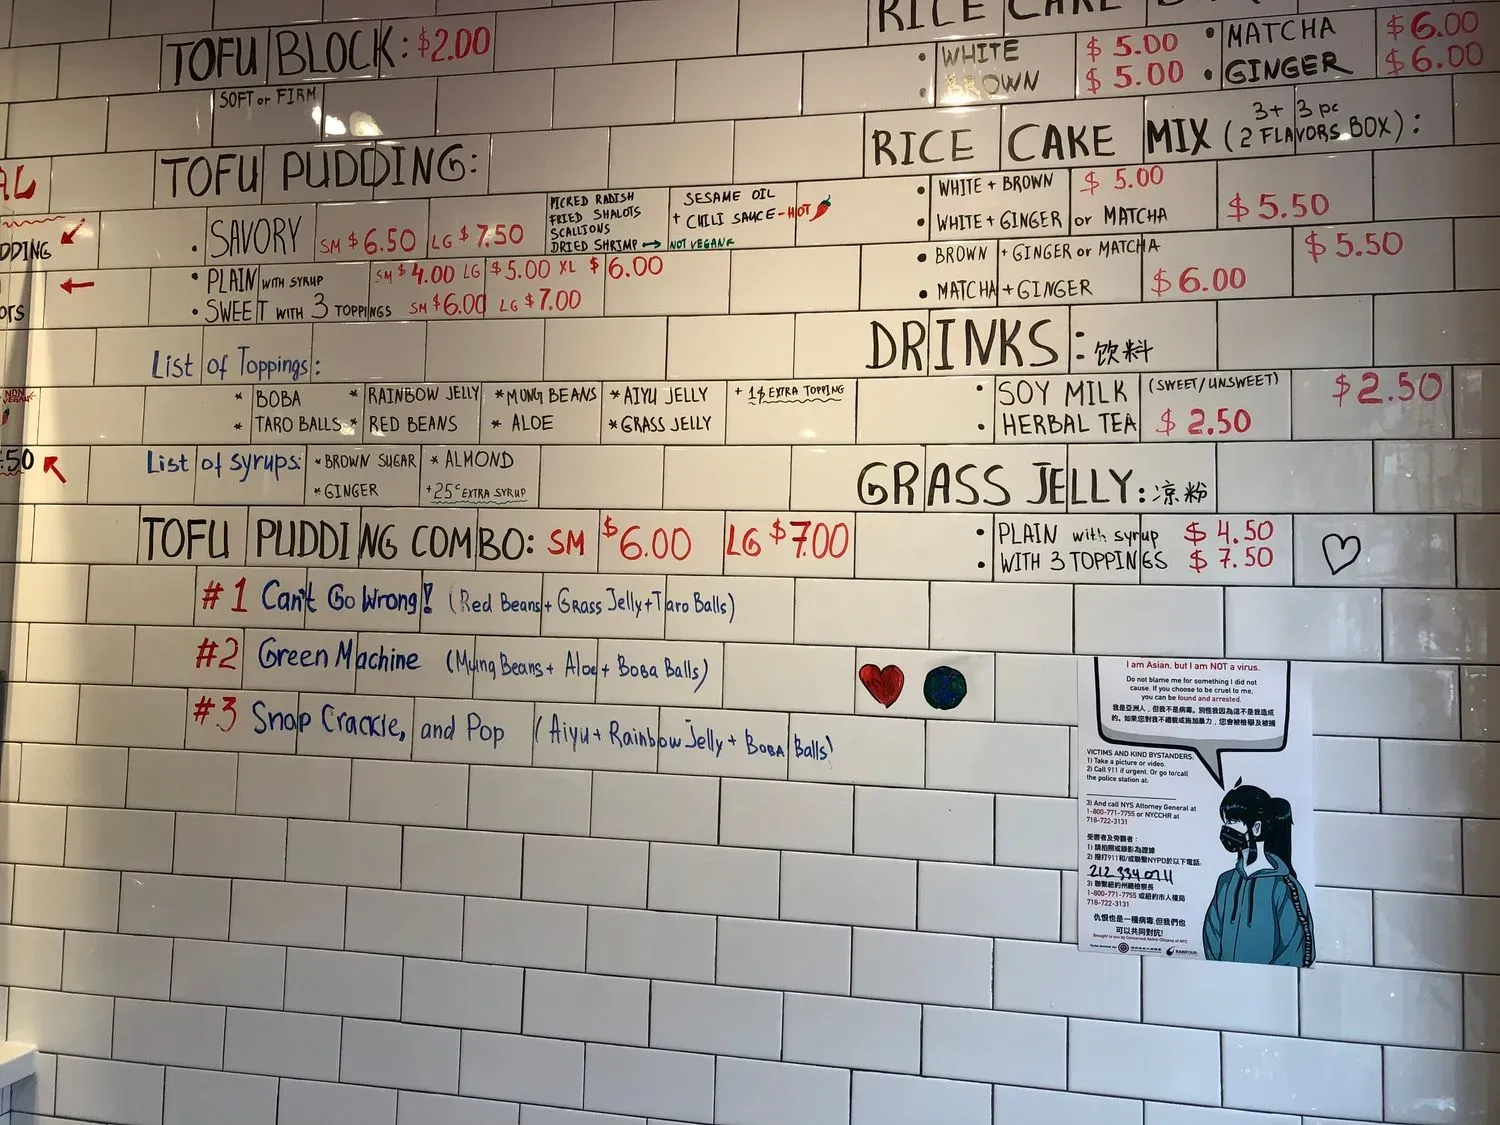 TOFU BLOCK: $2.00
SOFT or FIRM
TOFU PUDDING:
• SAVORY SM $6.50 LG $7.50
PICKED RADISH
FRIED SHALOTS
SCALLIONS
DRIED SHRIMP → NOT VEGAN
SESAME OIL
+ CHILI SAUCE-HOT
• PLAIN WITH SYRUP SM $4.00 LG $5.00 XL $6.00
• SWEET WITH 3 TOPPINGS SM $6.00 LG $7.00
List of Toppings:
* BOBA * RAINBOW JELLY * MUNG BEANS * AIYU JELLY + 1$ EXTRA TOPPING
* TARO BALLS * RED BEANS * ALOE * GRASS JELLY
List of syrups: * BROWN SUGAR * ALMOND
* GINGER +25¢ EXTRA SYRUP
TOFU PUDDING COMBO: SM $6.00 LG $7.00
#1 Can't Go Wrong! (Red Beans + Grass Jelly + Taro Balls)
#2 Green Machine (Mung Beans + Aloe + Boba Balls)
#3 Snap Crackle, and Pop (Aiyu + Rainbow Jelly + Boba Balls)
RICE CAKE
• WHITE $5.00 • MATCHA $6.00
• BROWN $5.00 • GINGER $6.00
RICE CAKE MIX (3+3 pc 2 FLAVORS BOX):
• WHITE + BROWN $5.00
• WHITE + GINGER or MATCHA $5.50
• BROWN + GINGER or MATCHA $5.50
• MATCHA + GINGER $6.00
DRINKS: 饮料
• SOY MILK (SWEET/UNSWEET) $2.50
• HERBAL TEA $2.50
GRASS JELLY: 凉粉
• PLAIN with syrup $4.50
• WITH 3 TOPPINGS $7.50
I am Asian, but I am NOT a virus.
Do not blame me for something I did not
cause. If you choose to be cruel to me,
you can be found and arrested.
我是亞洲人，但我不是病毒。別怪我因為這不是我造成
的。如果您對我不禮貌或施加暴力，您會被檢舉及被捕
VICTIMS AND KIND BYSTANDERS:
1) Take a picture or video.
2) Call 911 if urgent. Or go to/call
the police station at:
3) And call NYS Attorney General at
1-800-771-7755 or NYCCHR at
718-722-3131
受害者及旁觀者：
1) 請拍照或錄影為證據
2) 撥打911和/或聯繫NYPD於以下電話:
212 334 0711
3) 聯繫紐約州總檢察長
1-800-771-7755 或紐約市人權局
718-722-3131
仇恨也是一種病毒,但我們也
可以共同對抗!
Brought to you by Concerned Asian Citizens of NYC